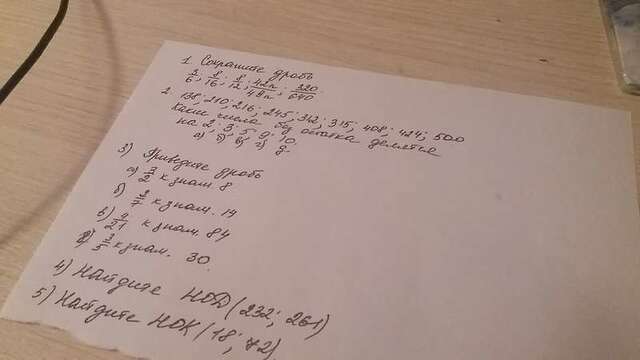 1. Сократите дробь
3/6; 8/16; 8/12; 42n/48n; 320/640
2. 138; 210; 216; 245; 312; 315; 408; 424; 500
Какие числа без остатка делятся
на 2; 3; 5; 9; 10.
а) б) в) г) д.
3) Приведите дробь
а) 3/2 к знам. 8
б) 2/7 к знам. 14
в) 4/21 к знам. 84
г) 3/5 к знам. 30.
4) Найдите НОД (232; 261)
5) Найдите НОК (18; 72)